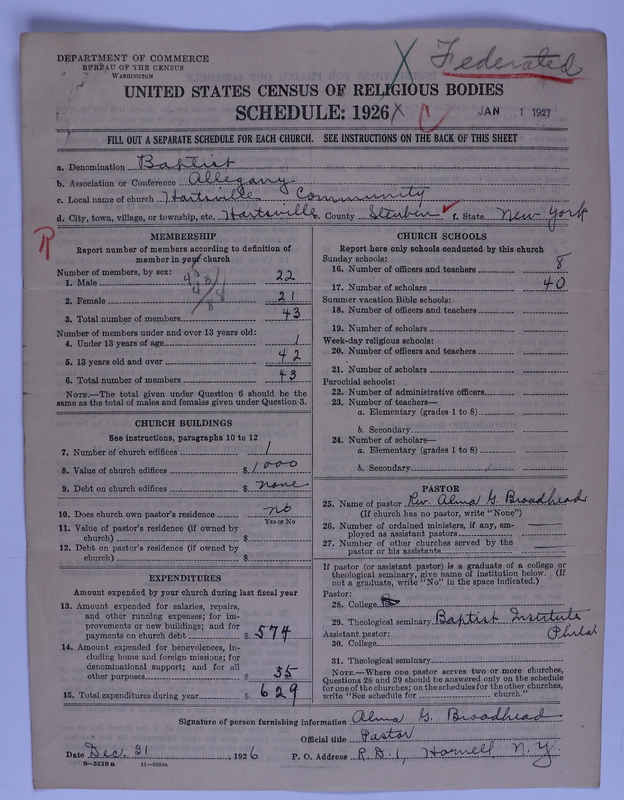 DEPARTMENT OF COMMERCE
BUREAU OF THE CENSUS
WASHINGTON
X Federated
UNITED STATES CENSUS OF RELIGIOUS BODIES
SCHEDULE: 1926 X C JAN 1 1927
FILL OUT A SEPARATE SCHEDULE FOR EACH CHURCH. SEE INSTRUCTIONS ON THE BACK OF THIS SHEET
a. Denomination Baptist
b. Association or Conference Allegany
c. Local name of church Hartsville Community
d. City, town, village, or township, etc. Hartsville County Steuben ✓ f. State New York
R
MEMBERSHIP
Report number of members according to definition of
member in your church
Number of members, by sex:
1. Male 22
2. Female 21
3. Total number of members 43
Number of members under and over 13 years old:
4. Under 13 years of age 1
5. 13 years old and over 42
6. Total number of members 43
NOTE.—The total given under Question 6 should be the
same as the total of males and females given under Question 3.
CHURCH BUILDINGS
See instructions, paragraphs 10 to 12
7. Number of church edifices 1
8. Value of church edifices $1000
9. Debt on church edifices $ none
10. Does church own pastor's residence no
Yes or No
11. Value of pastor's residence (if owned by
church) $
12. Debt on pastor's residence (if owned by
church) $
EXPENDITURES
Amount expended by your church during last fiscal year
13. Amount expended for salaries, repairs,
and other running expenses; for im-
provements or new buildings; and for
payments on church debt $ 574
14. Amount expended for benevolences, in-
cluding home and foreign missions; for
denominational support; and for all
other purposes $ 55
15. Total expenditures during year $ 629
CHURCH SCHOOLS
Report here only schools conducted by this church
Sunday schools:
16. Number of officers and teachers 8
17. Number of scholars 40
Summer vacation Bible schools:
18. Number of officers and teachers
19. Number of scholars
Week-day religious schools:
20. Number of officers and teachers
21. Number of scholars
Parochial schools:
22. Number of administrative officers
23. Number of teachers—
a. Elementary (grades 1 to 8)
b. Secondary
24. Number of scholars—
a. Elementary (grades 1 to 8)
b. Secondary
PASTOR
25. Name of pastor Rev. Alma G. Broadhead
(If church has no pastor, write "None")
26. Number of ordained ministers, if any, em-
ployed as assistant pastors
27. Number of other churches served by the
pastor or his assistants
If pastor (or assistant pastor) is a graduate of a college or
theological seminary, give name of institution below. (If
not a graduate, write "No" in the space indicated.)
Pastor:
28. College
29. Theological seminary Baptist Institute
Assistant pastor: Phila
30. College
31. Theological seminary
NOTE.—Where one pastor serves two or more churches,
Questions 28 and 29 should be answered only on the schedule
for one of the churches; on the schedules for the other churches,
write "See schedule for church."
Signature of person furnishing information Alma G. Broadhead
Official title Pastor
Date Dec. 31, 1926 P. O. Address R.D. 1, Hornell, N.Y.
8—5518a 11—9034a